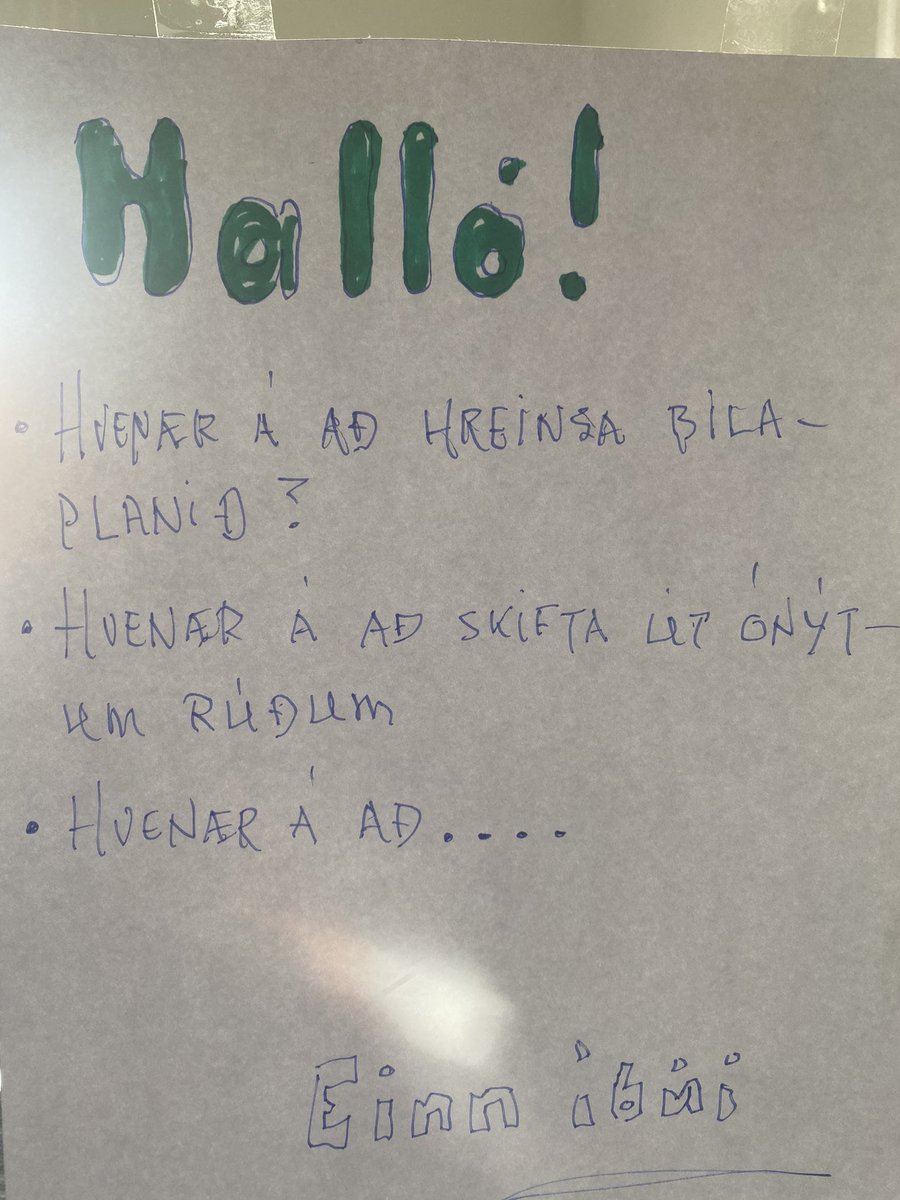 Halló!
• HVENÆR Á AÐ HREINSA BÍLA-
PLANIÐ?
• HVENÆR Á AÐ SKIFTA ÚT ÓNÝT-
UM RÚÐUM
• HVENÆR Á AÐ....
Einn íbúi